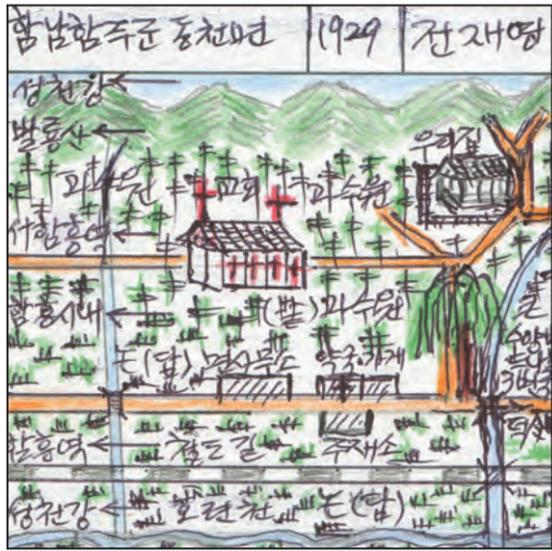 함남함주군 동천면 1929 전재영
성천강
발룡산
우리집
과수원 교회 과수원
서함흥역
함흥시내
밭(밭)과수원
논(답) 면사무소 약국가게
함흥역 철도길 주재소
성천강 호련천 논(답)